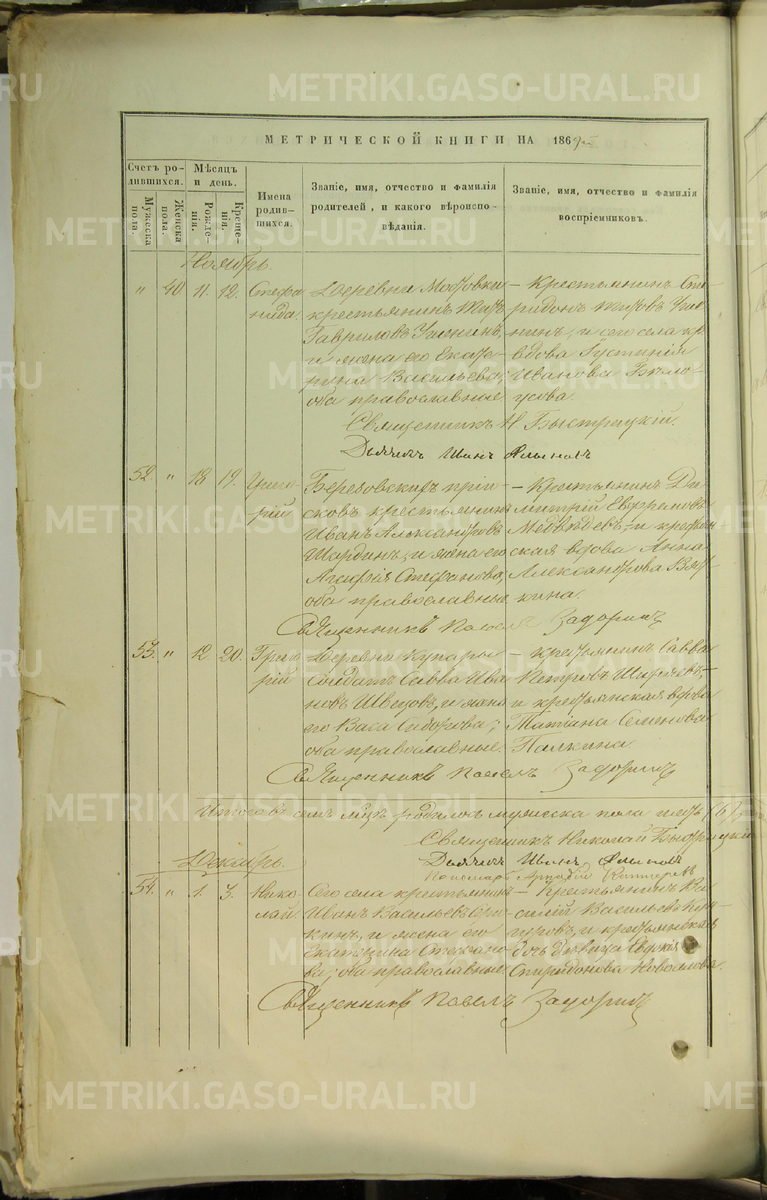 МЕТРИЧЕСКОЙ КНИГИ НА 1869й
Счетъ родившихся.
Мужеска пола.
Женска пола.
Мѣсяцъ и день.
Рожденія.
Крещенія.
Имена родившихся.
Званіе, имя, отчество и фамилія
родителей, и какого вѣроиспо-
вѣданія.
Званіе, имя, отчество и фамилія
воспріемниковъ.
Ноябрь.
" 40. 11. 12. Стефа-
нида.
Деревни
крестьянинъ Титъ
Гавриловъ
и жена его Екате-
рина Васильева;
оба православные
Крестьянинъ Спи-
ридонъ Титовъ
и сего села кр.
вдова Iустинія
Иванова Бѣло-
усова.
Священникъ Н Быстрицкій.
Дьячекъ Иванъ
52. " 18 19. Григо-
рій
Березовскихъ прiи-
сковъ крестьянинъ
Иванъ Александровъ
Шардинъ, и жена его
Агафія Стефанова,
оба православные
Крестьянинъ Ди-
митрій Евфремовъ
Медвѣдевъ; и крестьян-
ская вдова Анна
Александрова Вят-
кина.
Священникъ Павелъ Задоринъ
53. " 12 20. Григо-
рій
Деревни
Солдатъ Савва Ива-
новъ Швецовъ, и жена
его Васса Сидорова;
оба православные.
Крестьянинъ Савва
Петровъ
и крестьянская вдова
Татіана Семенова
Палкина.
Священникъ Павелъ Задоринъ
Итого въ семъ мцѣ родилось мужеска пола шесть (6)
Священникъ Николай Быстрицкій
Дьячекъ Иванъ
Декабрь.
Пономарь Аркадій
54. " 1. 3. Нико-
лай
Сего села крестьянинъ
Иванъ Васильевъ
и жена его
Екатерина Стефано-
ва; оба православные
Крестьянинъ Ва-
силій Васильевъ
и крестьянская
дочь дѣвица Евдокія
Спиридонова
Священникъ Павелъ Задоринъ
METRIKI.GASO-URAL.RU